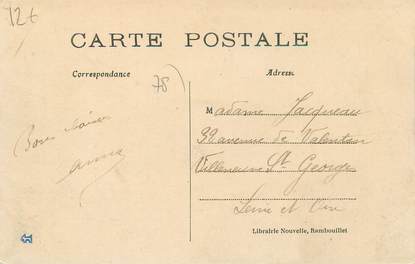 12€
CARTE POSTALE
Correspondance
78
Adresse
Madame Jacqueau
39 avenue de Valenton
Villeneuve St Georges
Seine et Oise
Bons baisers
Librairie Nouvelle, Rambouillet